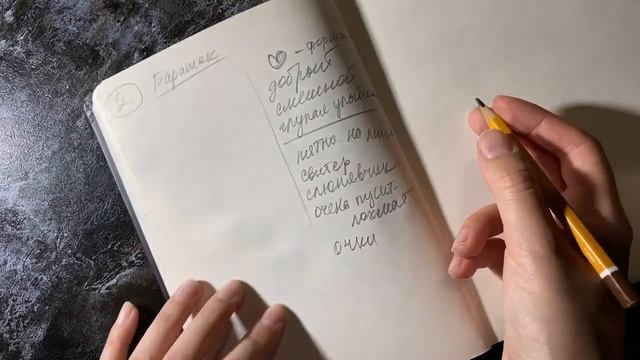 2
Барашек
♡ - форма
добрый
смешной
глупая улыбка
пятно на лице
свитер
слюнявчик
очень пушист-
лохмат
очки